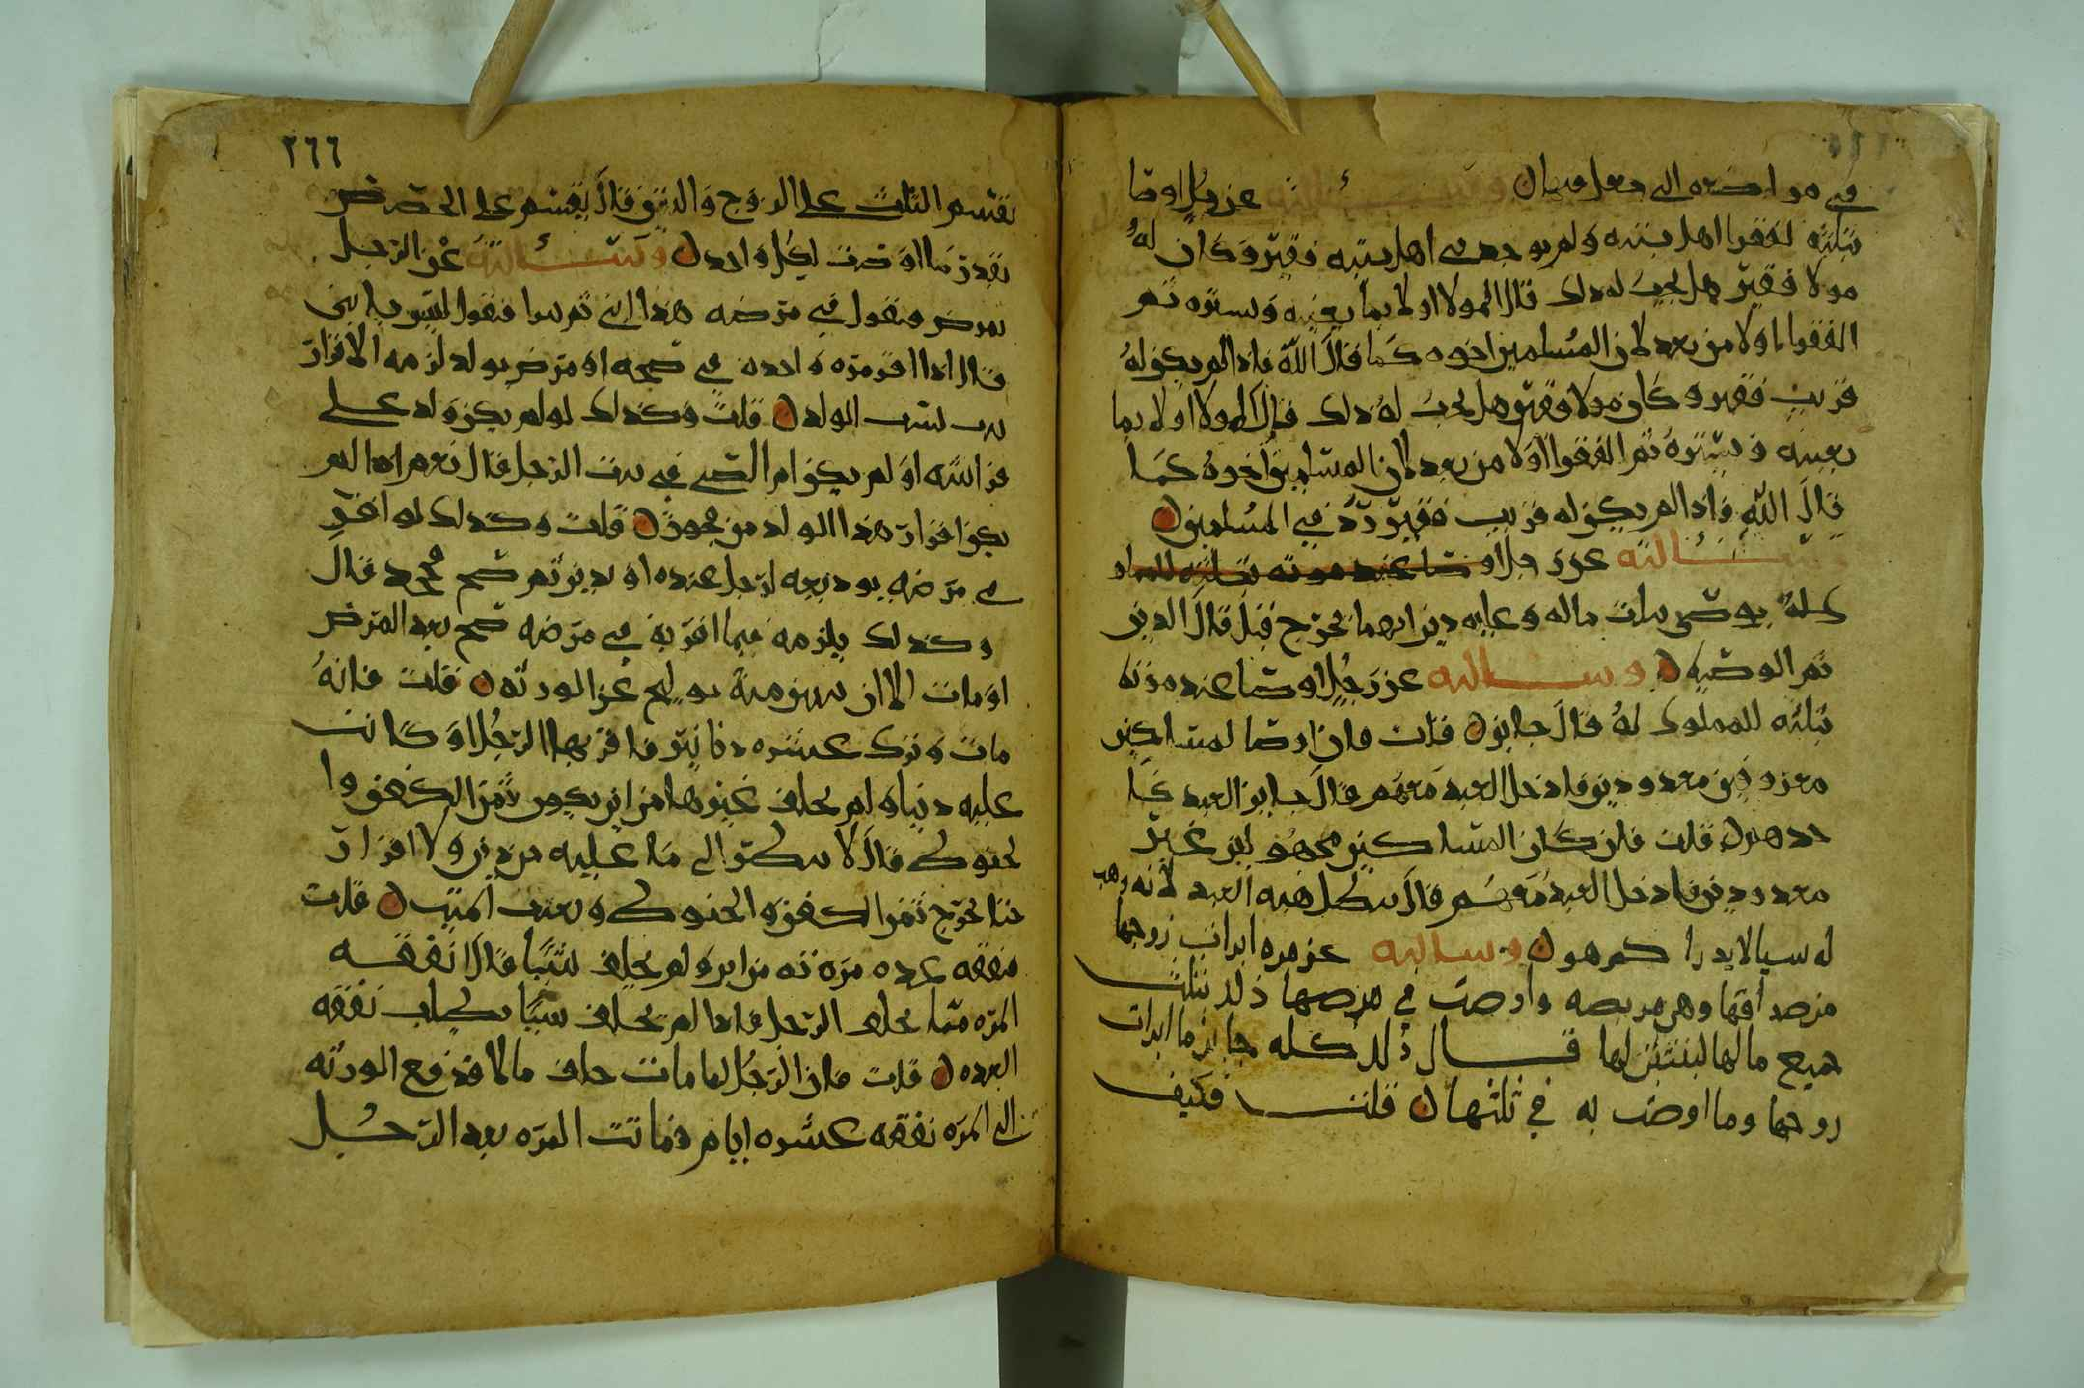 في مواضعه التي جعل فيها ن وسالته عن رجل اوصا
بثلثه لفقرا اهل بيته ولم يوجد في اهل بيته فقير وكان له
مولا فقير هل يجب له ذلك قال المولا اولا بما يعينه ويستره ثم
الفقرا اولا من بعد لان المسلمين اخوه كما قال الله فاذا لم يكن له
قريب فقير وكان مولا فقير هل يجب له ذلك قال المولا اولا بما
يعينه ويستره ثم الفقرا اولا من بعد لان المسلمين اخوه كما
قال الله فاذا لم يكن له قريب فقير رد في المسلمين ن
وسالته عن رجل اوصا عند موته بثلثه
يوصي بثلث ماله وعليه دين ايهما يخرج قبل قال الدين
ثم الوصيه ن وسالته عن رجل اوصا عند موته
بثلثه للمملوك له قال جايز ن قلت فان اوصا لمساكين
معروفين معدودين فادخل العبد معهم قال جايز العبد كا
حدهم ن قلت فان كان المساكين مجهولين غير
معدودين فادخل العبد معهم قال يبطل فيه العبد لانه وهب
له سيا لا يدرا كم هو ن وسالته عن مره ابرات زوجها
من صداقها وهي مريضه واوصت في مرضها ذلك بثلث
جميع مالها لبنتين لها قال ذلك كله جايز ما ابرات
زوجها وما اوصت به في ثلثها ن قلت فكيف
٢٦٦
نقسم الثلث على الزوج والبنتين قال يقسم على الحصص
بقدر ما اوصت لكل واحد ن وسالته عن الرجل
يمرض فيقول في مرضه هذا ابني ثم يبرا فيقول ليس بابني
قال اذا اقر مره واحده في صحه او مرض بولد لزمه الاقرار
ثبت نسب الولد ن قلت وكذلك لو لم يكن ولد على
فراشه او لم يكن ام الصبي في بيت الرجل قال نعم اذا لم
يكن اقرار هذا الولد من فجور ن قلت وكذلك لو اقر
في مرضه بوديعه لرجل عنده او بدين ثم صح فجحد قال
وكذلك يلزمه فيما اقر به في مرضه صح بعد المرض
او مات الا ان عن الورثه ن قلت فانه
مات وترك عشره دنانير فاقر بها الرجل او كانت
عليه دينا ولم يخلف غيرها من اين يكون ثمن الكفن وا
لحنوط قال لا ينظر الى ما عليه من دين ولا اقرار
حتا يخرج ثمن الكفن والحنوط وبعث الميت ن قلت
فنفقه عده مرته من اين ولم يخلف شيا قال نفقه
المره مما يخلف الرجل فاذا لم يخلف شيا بطلت نفقه
العده ن قلت فان الرجل لما مات خلف مالا فدفع الورثه
الى المره نفقه عشره ايام فماتت المره بعد الرجل